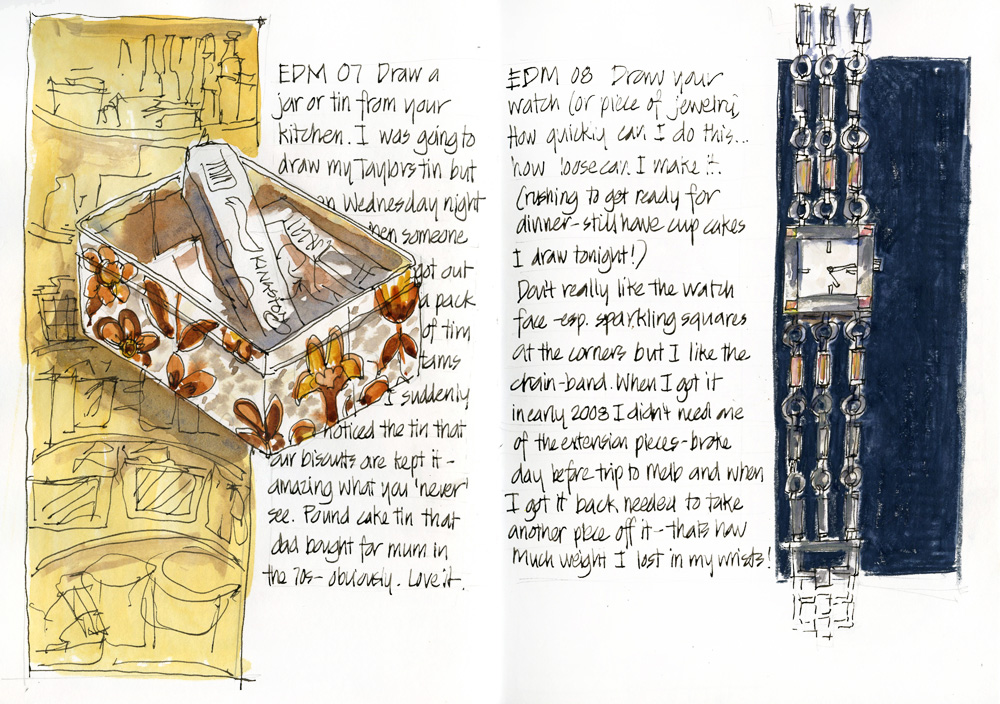 EDM 07 Draw a
jar or tin from your
kitchen. I was going to
draw my Taylors tin but
on Wednesday night
when someone
got out
a pack
of tim
tams
I suddenly
noticed the tin that
our biscuits are kept it –
amazing what you 'never'
see. Pound cake tin that
dad bought for mum in
the 70s – obviously. Love it.
KINGSTON
EDM 08 Draw your
watch (or piece of jewelry)
How quickly can I do this...
how loose can I make it.
(rushing to get ready for
dinner – still have cup cakes
I draw tonight!)
Don't really like the watch
face – esp. sparkling squares
at the corners but I like the
chain-band. When I got it
in early 2008 I didn't need one
of the extension pieces – broke
day before trip to Melb and when
I got it back needed to take
another piece off it – thats how
much weight I lost in my wrists!